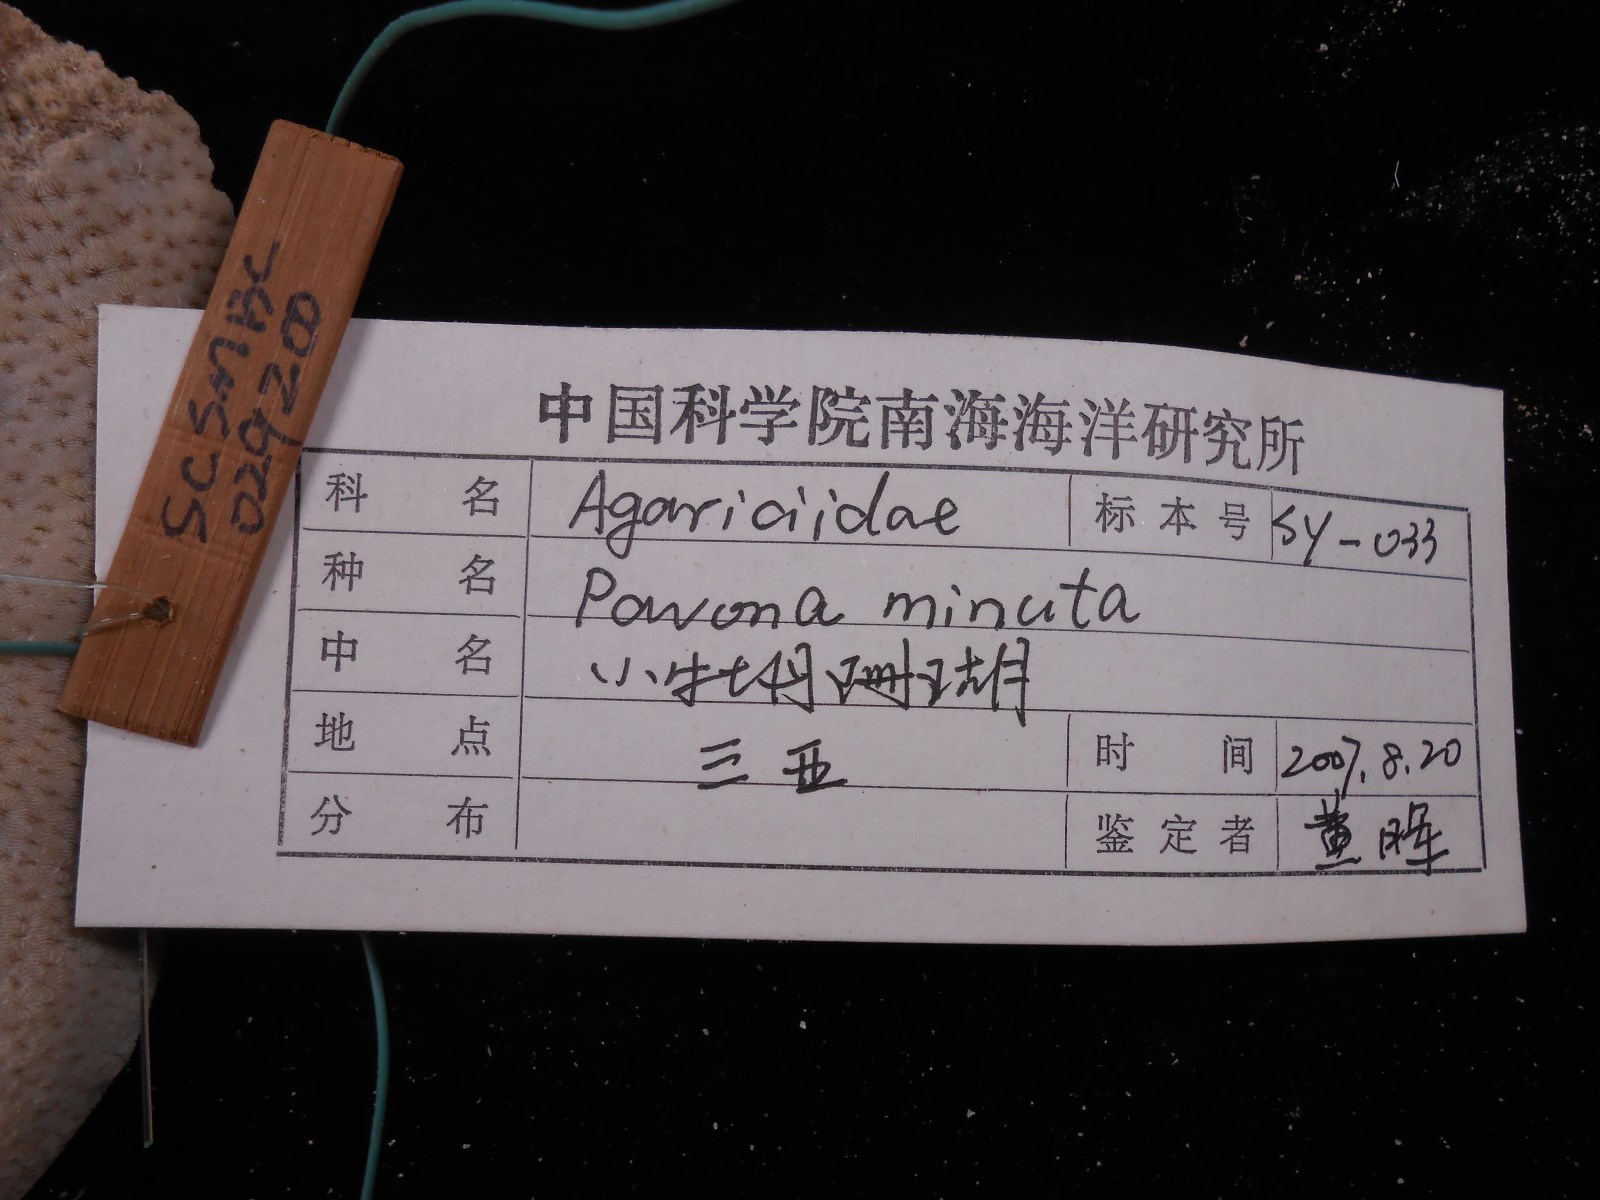 SCSMBC
029200
中国科学院南海海洋研究所
科名 Agariciidae 标本号 SY-033
种名 Pavona minuta
中名 小牡丹珊瑚
地点 三亚 时间 2007.8.20
分布 鉴定者 黄晖